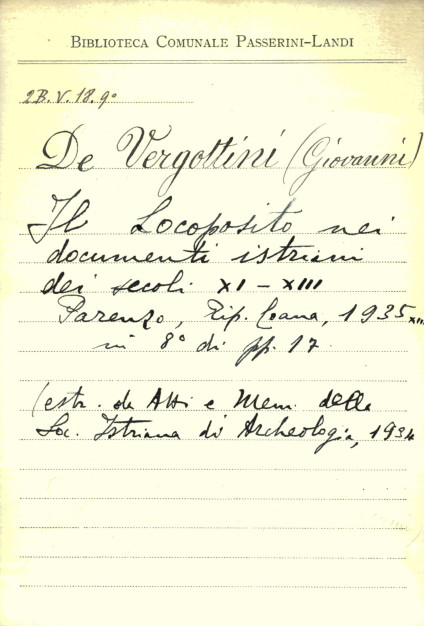 BIBLIOTECA COMUNALE PASSERINI-LANDI
2B.V.18.9º
De Vergottini (Giovanni)
Il Locoposito nei
documenti istriani
dei secoli XI - XIII
Parenzo, Tip. Coana, 1935 XIII
in 8º di pp. 17
(estr. da Atti e Mem. della
Soc. Istriana di Archeologia, 1934